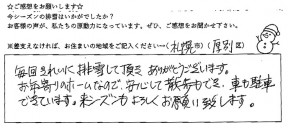 ☆ご感想をお願いします☆
今シーズンの排雪はいかがでしたか？
お客様の声が、私たちの原動力になっています。ぜひ、ご感想をお聞かせ下さい。
※差支えなければ、お住まいの地域をご記入ください→(札幌市)(厚別区)
毎回きれいに排雪して頂きありがとうございます。
お年寄りのホームなので、安心して散歩もでき、車も駐車
できています。来シーズンもよろしくお願い致します。